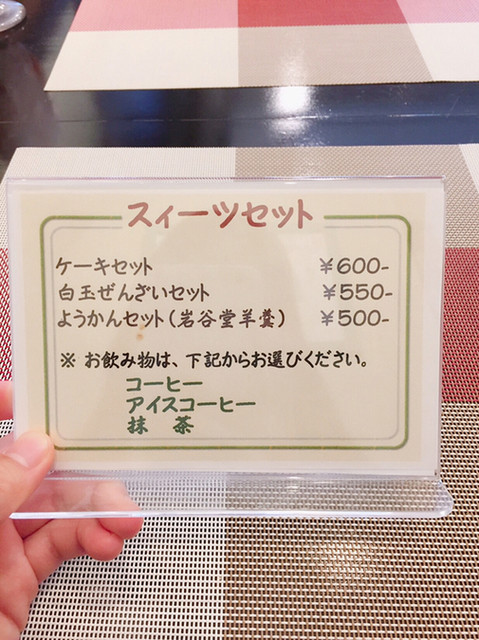 スィーツセット
ケーキセット ￥600-
白玉ぜんざいセット ￥550-
ようかんセット(岩谷堂羊羹) ￥500-
※ お飲み物は、下記からお選びください。
コーヒー
アイスコーヒー
抹 茶